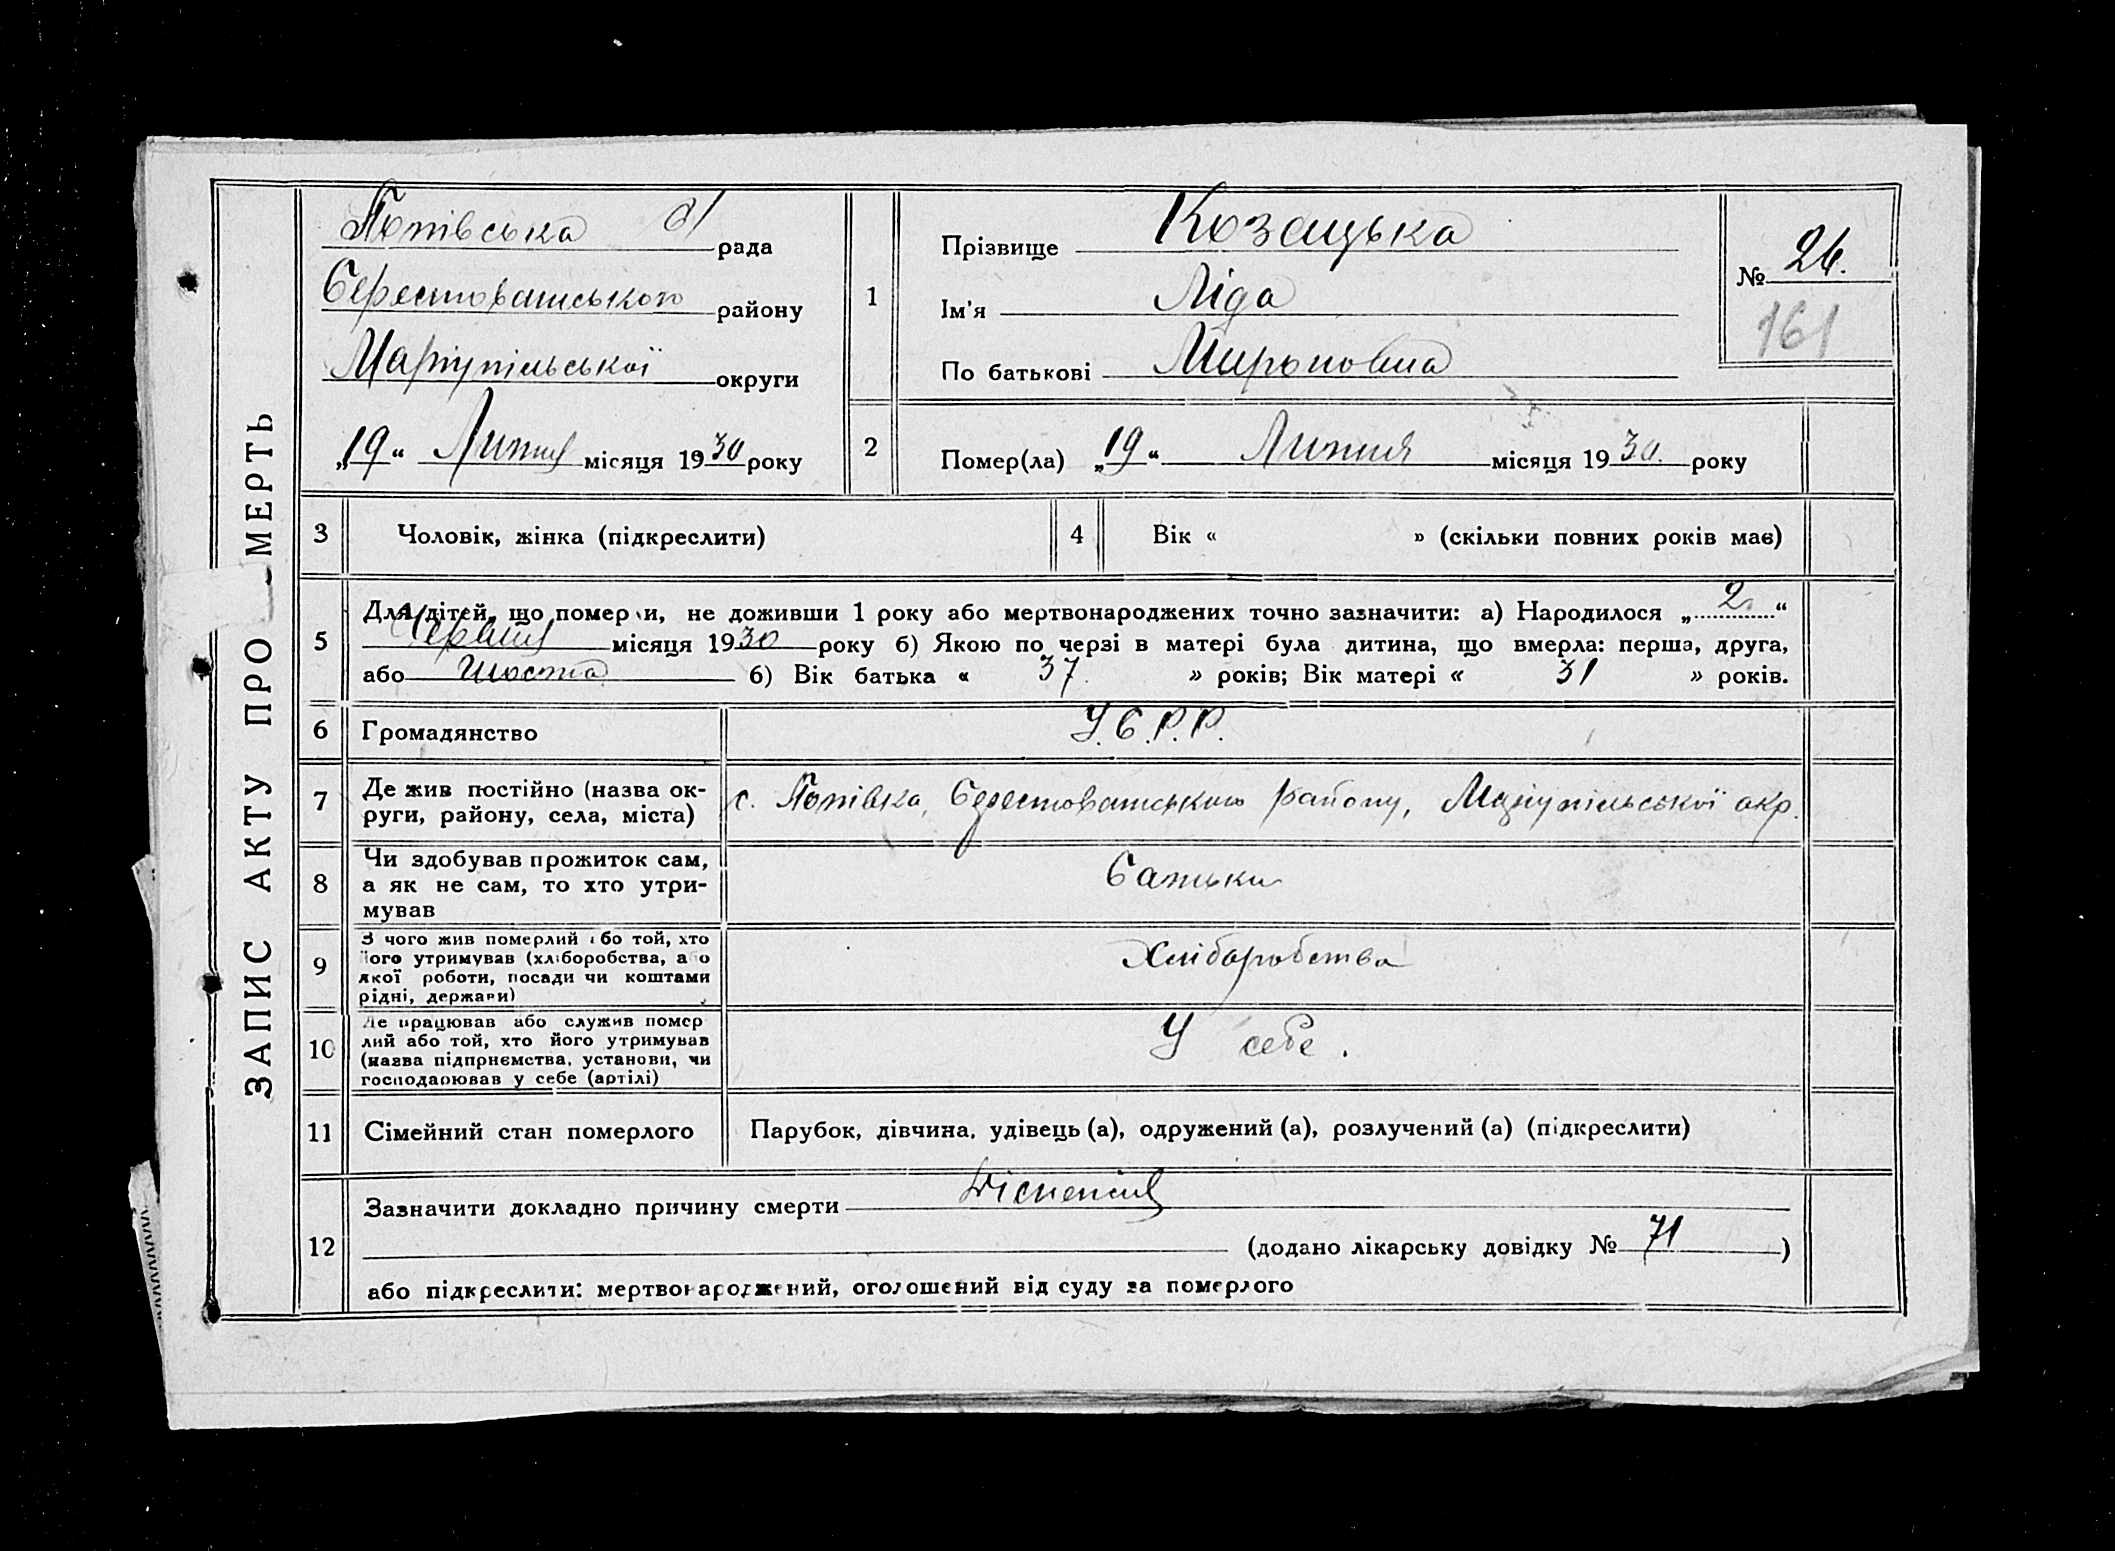 ЗАПИС АКТУ ПРО МЕРТЬ
Попівська с/ рада
Єерестоватського району
Маріупільської округи
„19“ Липня місяця 1930 року
1
Прізвище Козацька
Ім'я Ліда
По батькові Мироновна
№ 26.
161
2
Помер(ла) „19“ Липня місяця 1930. року
3
Чоловік, жінка (підкреслити)
4
Вік « » (скільки повних років має)
5
Для дітей, що померли, не доживши 1 року або мертвонароджених точно зазначити: а) Народилося „2“
Червня місяця 1930 року б) Якою по черзі в матері була дитина, що вмерла: перша, друга,
або шоста б) Вік батька « 37 » років; Вік матері « 31 » років.
6
Громадянство
У.С.Р.Р.
7
Де жив постійно (назва ок-
руги, району, села, міста)
с. Попівка, Єерестоватського району, Маріупільської окр.
8
Чи здобував прожиток сам,
а як не сам, то хто утри-
мував
Батьки
9
З чого жив померлий або той, хто
його утримував (хліборобства, або
якої роботи, посади чи коштами
рідні, держави)
Хліборобства
10
Де працював або служив помер
лий або той, хто його утримував
(назва підприємства, установи, чи
господарював у себе (артілі)
У себе.
11
Сімейний стан померлого
Парубок, дівчина, удівець (а), одружений (а), розлучений (а) (підкреслити)
12
Зазначити докладно причину смерти Діспепсія
(додано лікарську довідку № 71)
або підкреслити: мертвонароджений, оголошений від суду за померлого